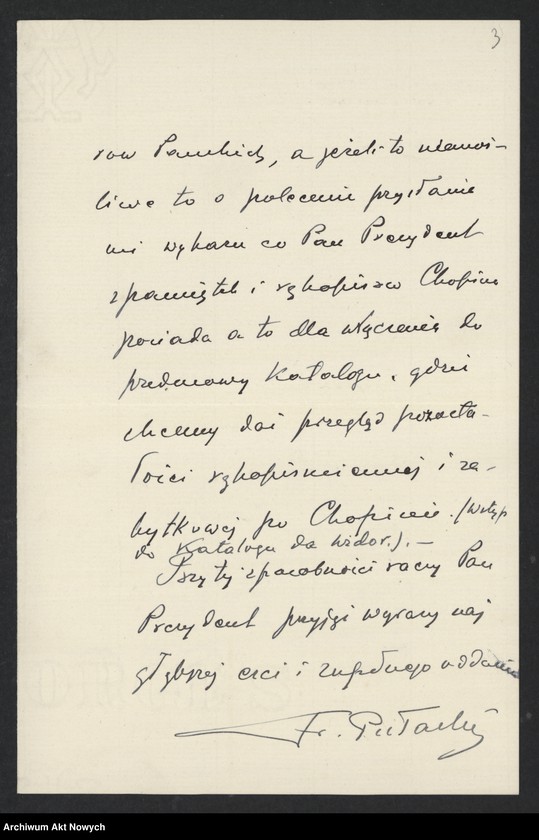 3
row Pańskich, a jeżeli to niemoż-
liwe to o polecenie przysłania
mi wykazu co Pan Prezydent
z pamiątek i rękopisów Chopina
posiada a to dla włączenia do
przedmowy Katalogu, gdzie
chcemy dać przegląd pozosta-
łości rękopiśmiennej i za-
bytkowej po Chopinie. (Wstęp
do Katalogu da Widor.). —
Przy tej sposobności raczy Pan
Prezydent przyjąć wyrazy naj
głębszej czci i zupełnego oddania
Fr. Pułaski
Archiwum Akt Nowych